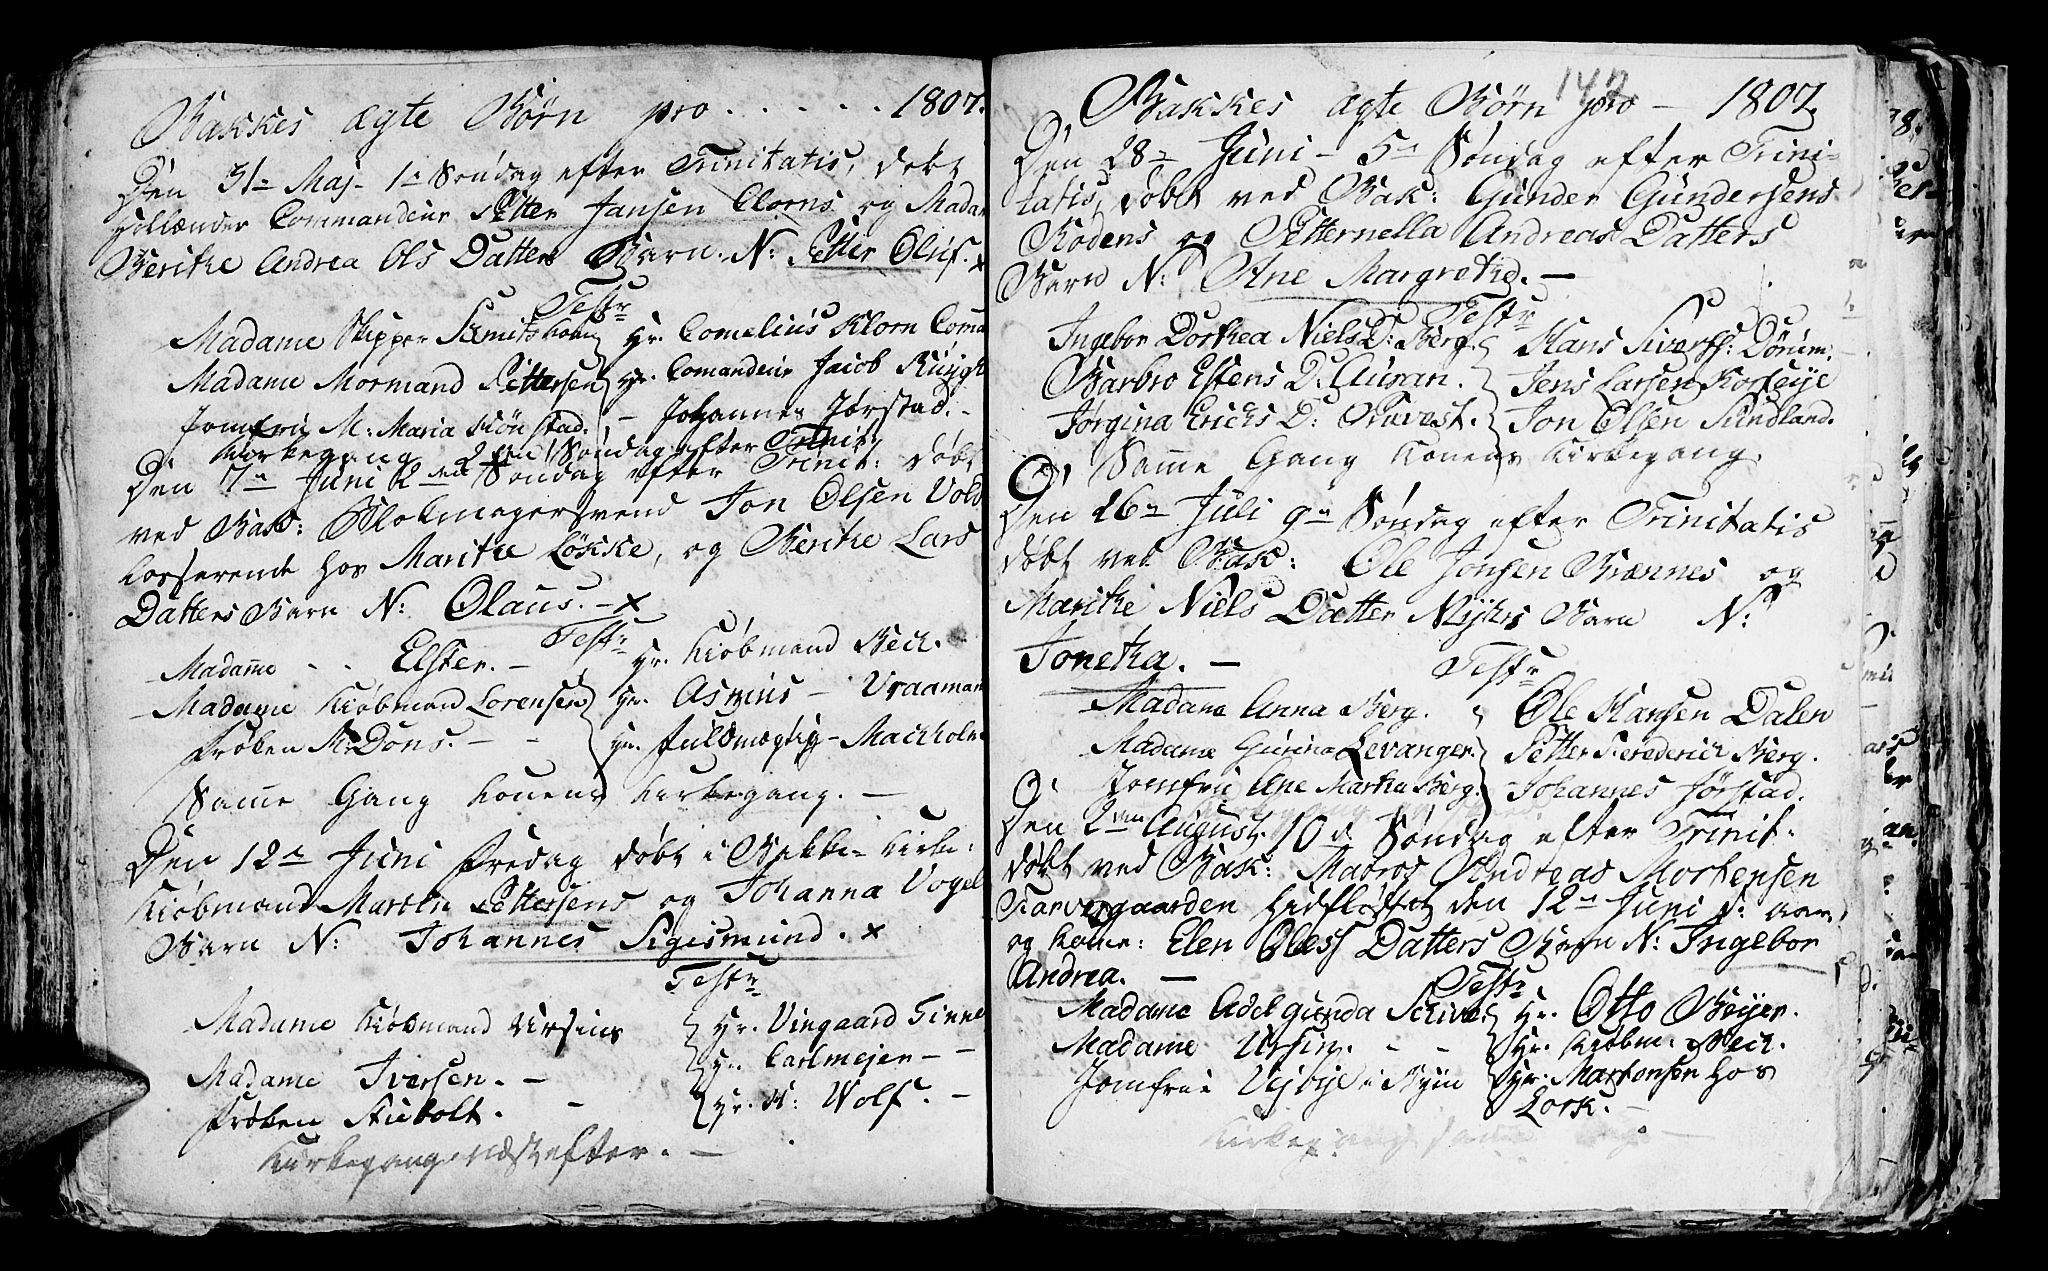 Bakkes ægte Børn pro . . . . . 1807.
Den 31te Maj 1te Søndag efter Trinitatis, døbt
Hillænder Commandeur Petter Jansen Clorns og Madam
Berithe Andrea Ols Datters Barn. N: Petter Oluf. x
Testr
Madame Skipper
Hr. Cornelius Klorn
Madame Mormand Pettersen
Hr. Comandeur Jacob
Jomfru M: Maria
- Johannes Jørstad. -
Kirkegang 2den Søndag efter Trinit
Den 7de Juni 2den Søndag efter Trinit: døbt
ved Bak: Blokmagersvend Jon Olsen Vold
Losserende hos Marithe Løkke, og Berithe Lars
Datters Barn N: Olaus. - x
Testr
Madame - - Elster. -
Hr. Kiøbmand Beck.
Madame Kiøbmand Lorensen
Hr. Asmus - Vraamann
Frøken M: Dons. - -
Hr. Fuldmægtig - Mackholm
Samme Gang Konens Kirkegang. -
Den 12te Juni Fredag døbt i Bakke Kirke:
Kiøbmand Martin Pettersens og Johanna Vogel
Barn N: Johannes Sigismund. x
Testr
Madame Kiøbmand Ursins
Hr. Vingaard Finne
Madame Iversen. -
Hr. Carlmejer - -
Frøken Stubolt. -
Hr. H: Wolf. -
Kirkegang næst efter. -
142
Bakkes ægte Børn pro - 1807.
Den 28de Juni - 5te Søndag efter Trini-
tatis, døbt ved Bak: Gunder Gundersens
Rodens og Petternella Andreas Datters
Barn N: Ane Margrethe. -
Testr
Ingebor Dorthea Niels D: Berg.
Hans Sivers: Dørum.
Barbro Estens D: Auran.
Jens Larsen Korseye
Jørgina Erichs D: Prøvest.
Jon Olsen Sundland.
Samme Gang Konens Kirkegang.
Den 26de Juli 9de Søndag efter Trinitatis
døbt ved Bak: Ole Jonsen Brænnes og
Marithe Niels Datter Myhrs Barn N:
Jonetha. -
Testr
Madame Anna Berg.
Ole Hansen Dalen
Madame Gurina Levanger.
Petter Frederich Berg.
Jomfru Ane Martha Berg.
Johannes Jørstad.
Den 2den August. 10de Søndag efter Trinit:
døbt ved Bak: Matros Andreas Mortensen
Farvergaarden Hidfløttet den 12te Juni d: aar,
og Kone: Elen Oless Datters Barn N: Ingebor
Andrea. -
Testr
Madame Adelgunda Schive
Hr. Otto Beyer.
Madame Ursin. - -
Hr. Kiøbm: Beck.
Jomfrue Vejbye i Byen
Hr. Martensen hos
Lork. -
Kirkegang samme